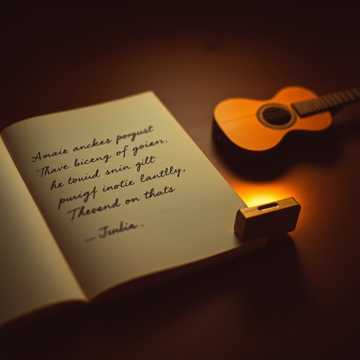 Amaie anckes porgust
Thave biceng of goien.
he touid snin gilt
purigf inotie lantlly,
Thevend on thats
— Jsnbia.